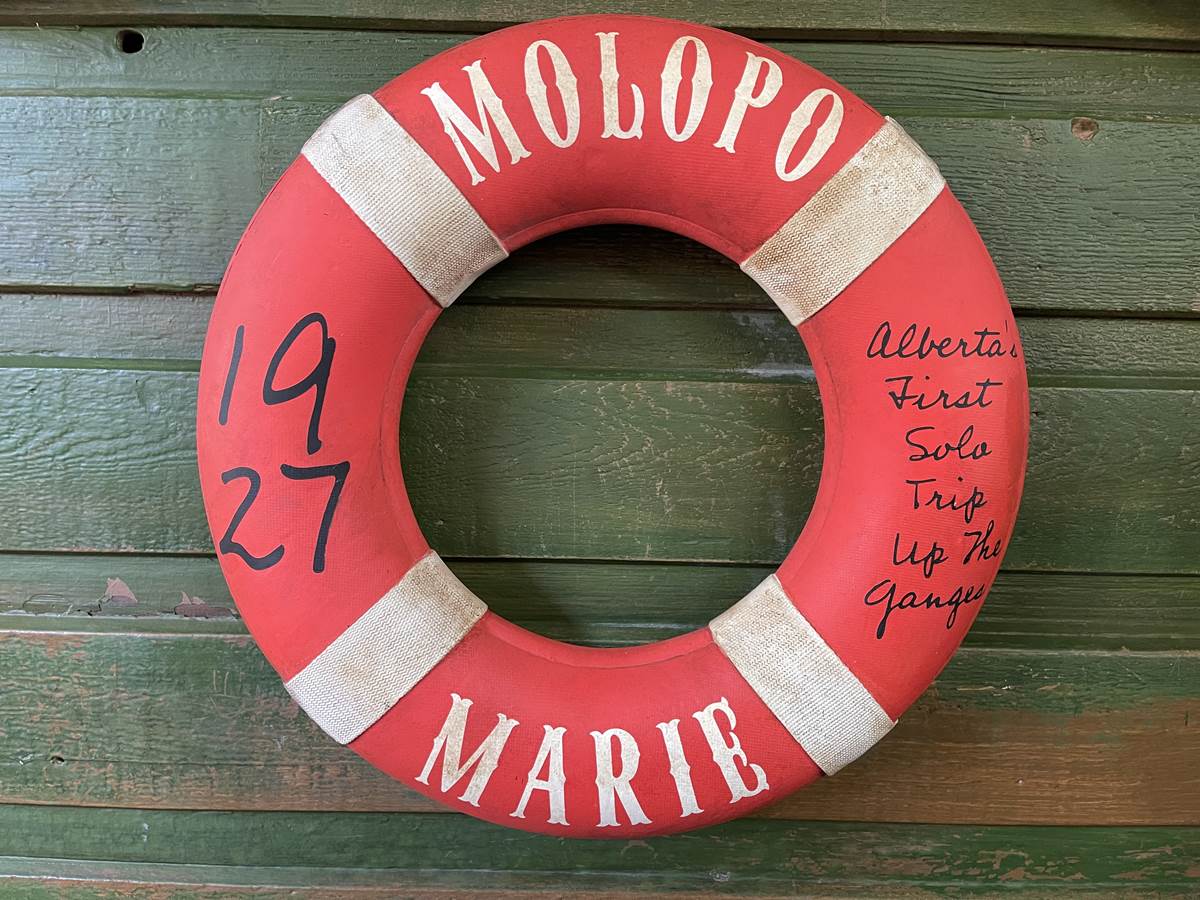 MOLOPO
19
27
Alberta's
First
Solo
Trip
Up The
Ganges
MARIE